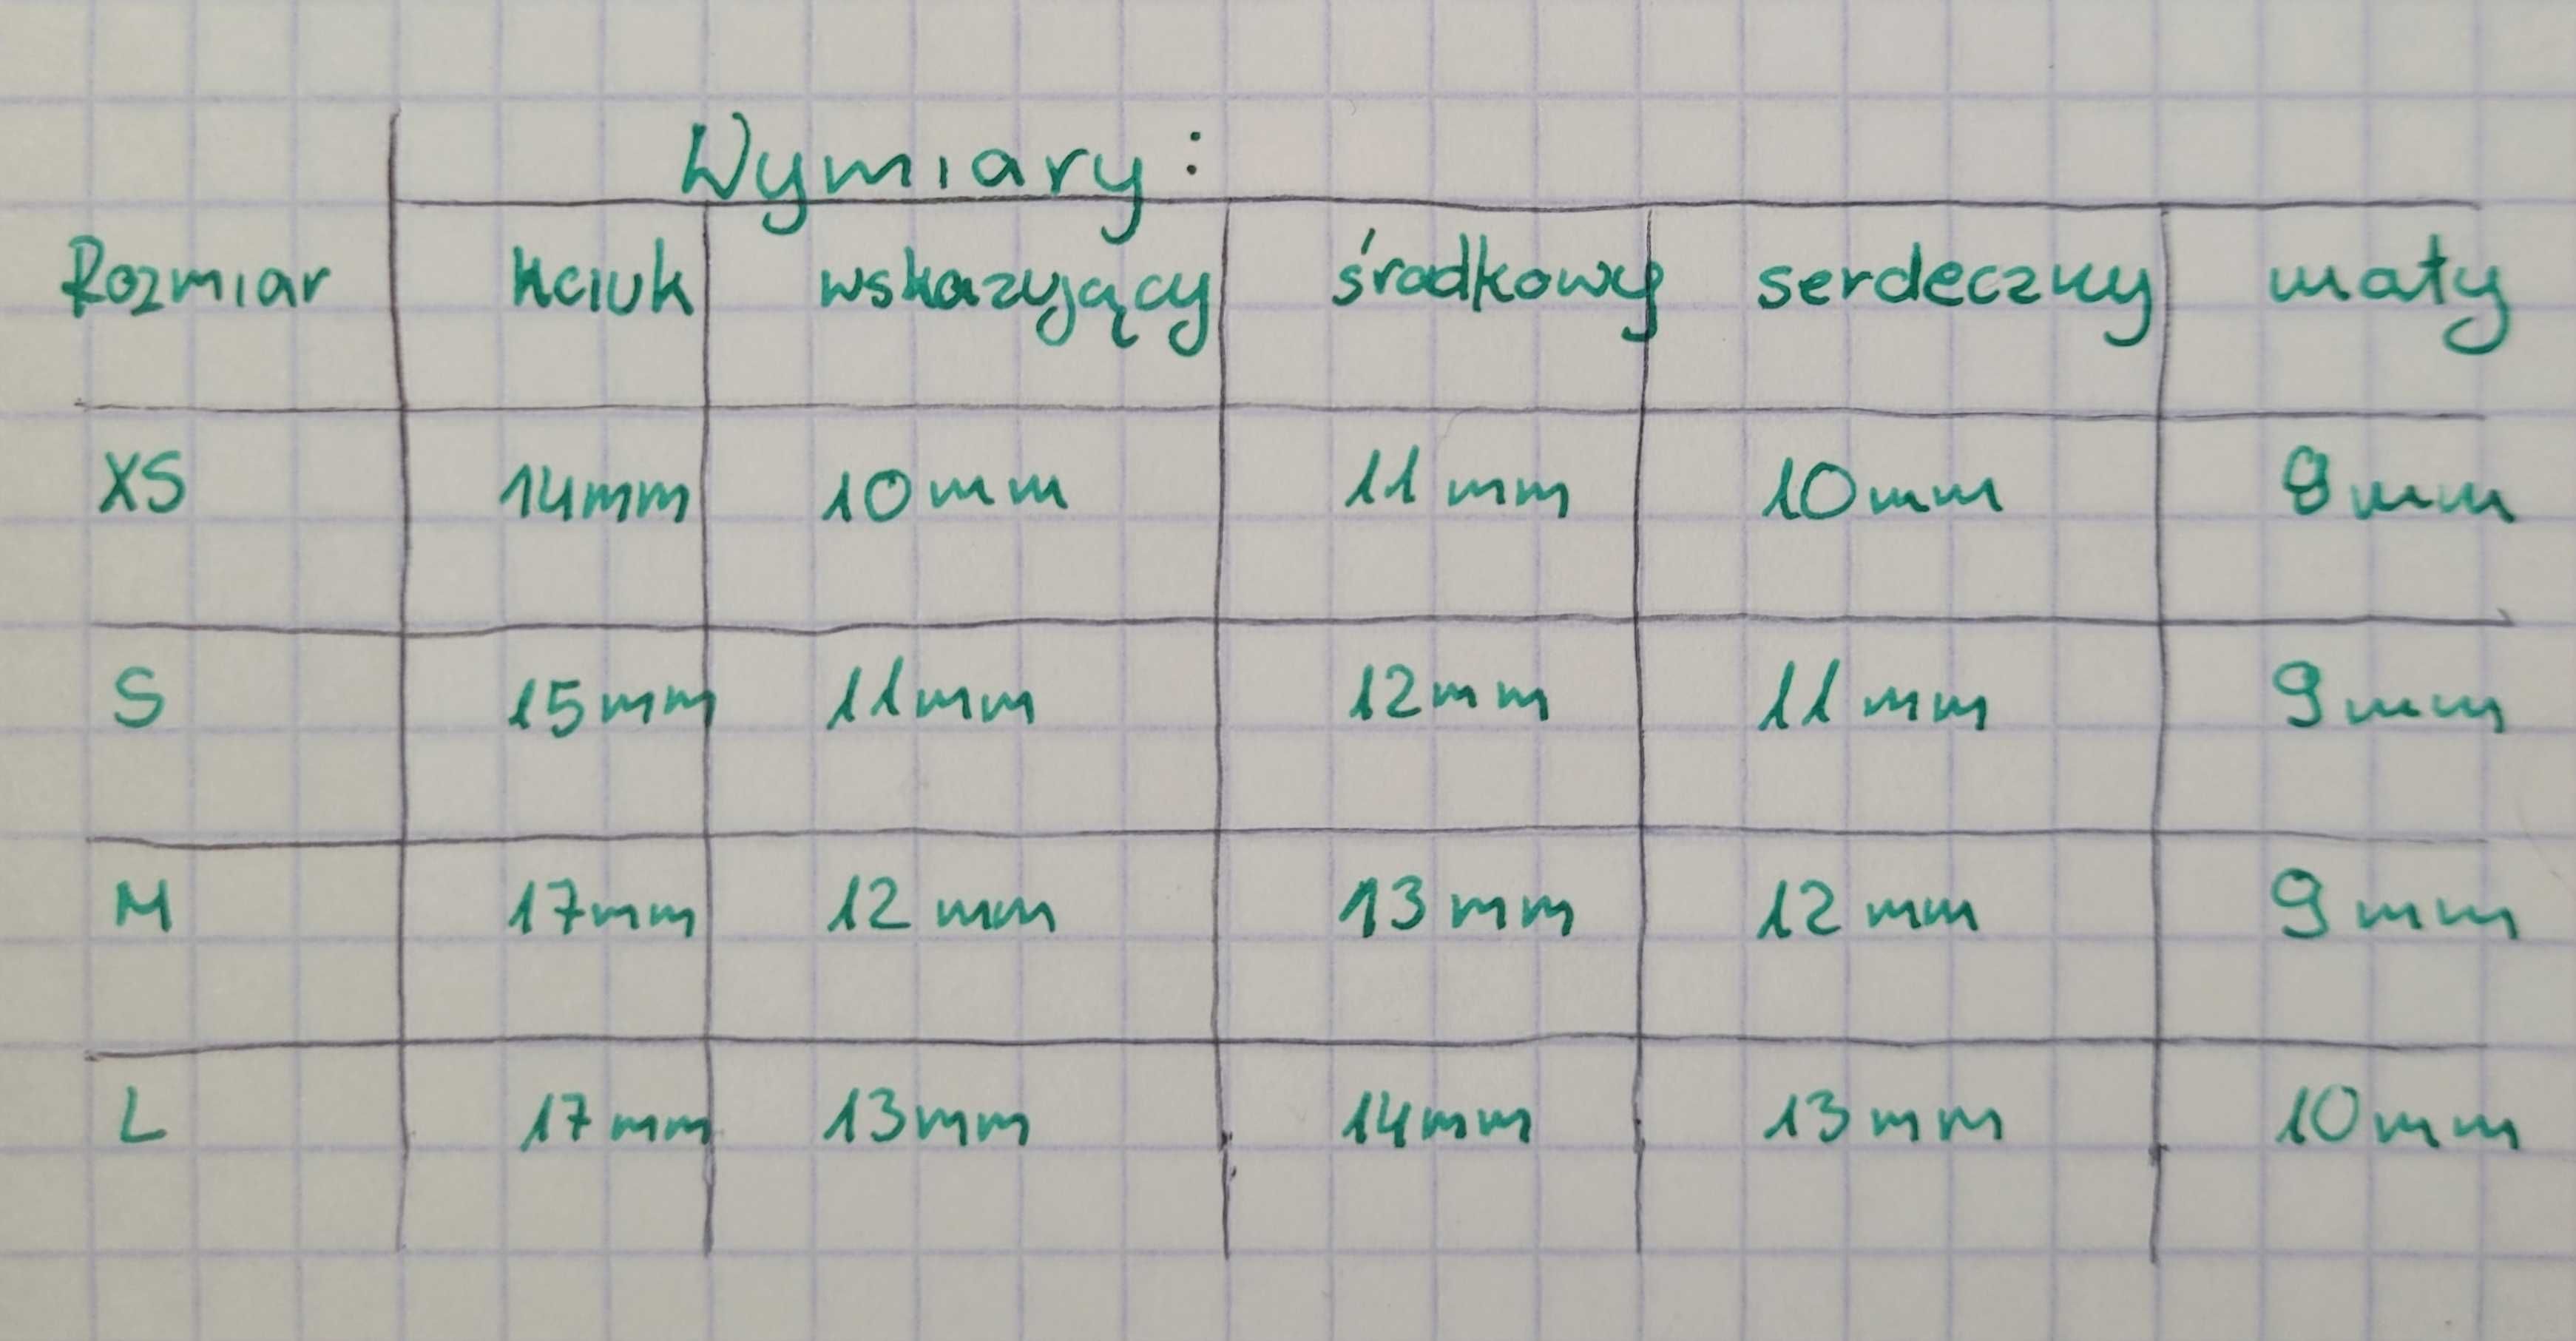 Wymiary:
Rozmiar kciuk wskazujący środkowy serdeczny mały
XS 14mm 10mm 11mm 10mm 8mm
S 15mm 11mm 12mm 11mm 9mm
M 17mm 12mm 13mm 12mm 9mm
L 17mm 13mm 14mm 13mm 10mm